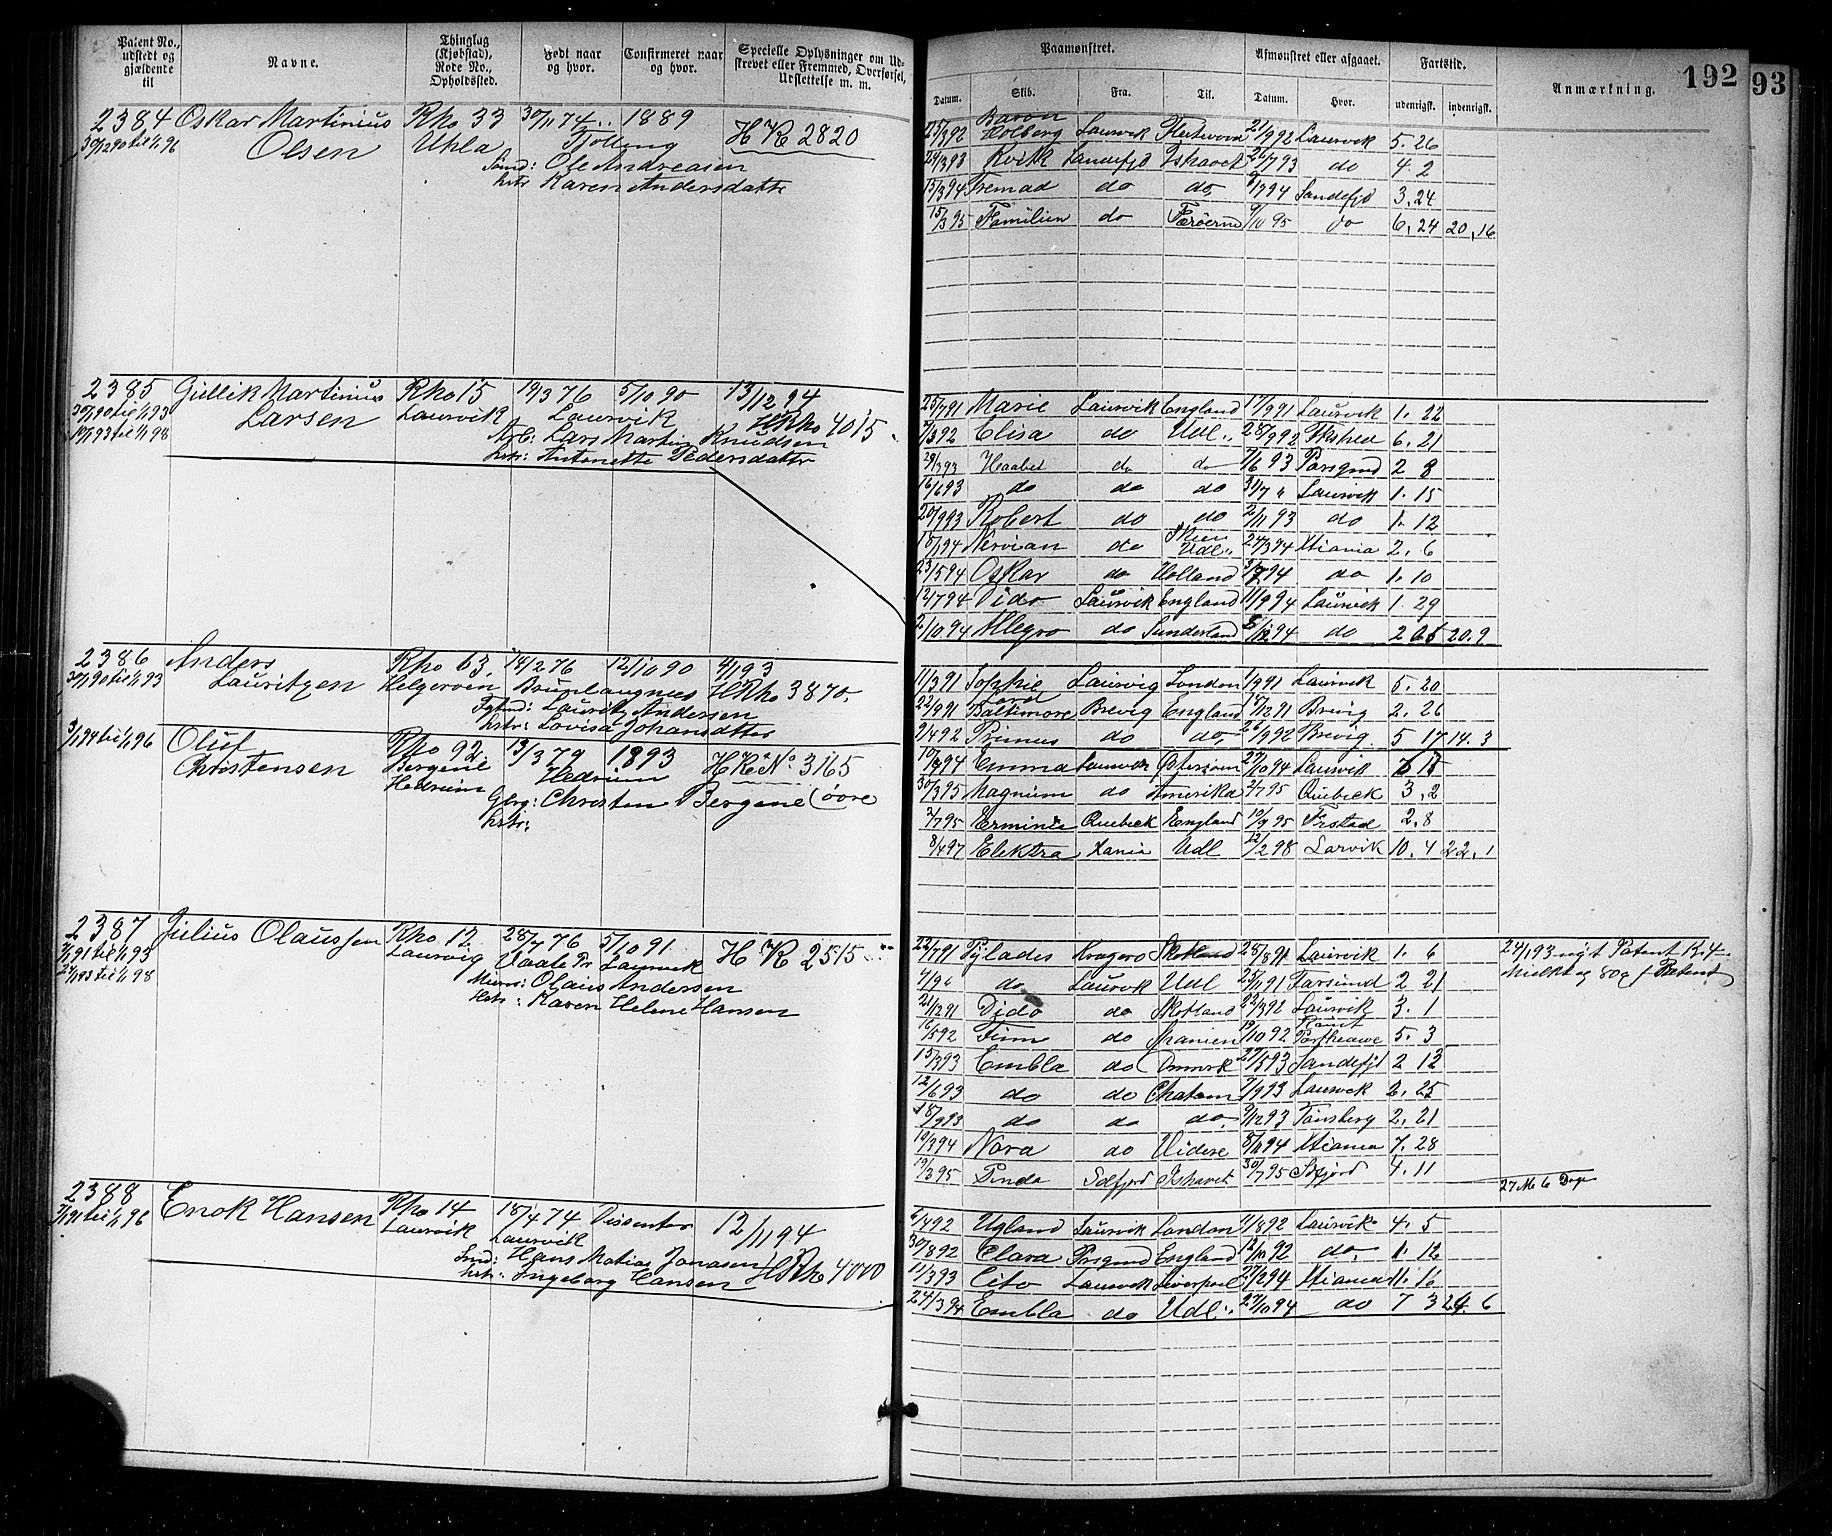 Patent No., udstedt og gjældende til
Navne.
Thinglag (Kjøbstad), Rode No., Opholdssted.
Født naar og hvor.
Confirmeret naar og hvor.
Specielle Oplysninger om Udskrevet eller Fremmed, Overførsel, Udslettelse m. m.
2384 Oskar Martinius Rho 33 30/11 74 1889 HR 2820
30/12 90 til 1/1 96 Olsen Uhla Tjølling
Smd: Ole Andreasen
hstr Karen Andersdatter
2385 Gullik Martinius Rho 15 19/3 76 5/10 90 13/12 94
30/1 90 til 1/1 93 Larsen Laurvik Laurvik HRho 4015
19/1 93 til 1/1 98 Arb: Lars Martin Knudsen
hstr: Antonette Pedersdatter
2386 Anders Rho 63, 14/2 76 12/10 90 4/1 93
30/1 90 til 1/1 93 Lauritzen Helgerven Brunlangnæs HRho 3870.
Lauritz Andersen
hstr: Lovisa Johansdatter
3/1 94 til 1/1 96 Oluf Rho 92. 13/3 79 1893 HR No. 3165
Christensen Bergene Hedrum
Hedrum Gbrg: Christen Bergene (øvre
hstr:
2387 Julius Olaussen Rho 12 28/7 76 5/10 91. HR 2515
7/1 91 til 1/1 93 Laurvig Vaale Pr Laurvik
24/1 93 til 1/1 98 Olaus Andersen
Hstr: Karen Helene Hansen
2388 Enok Hansen Rho 14 18/4 74 Dissenter 12/11 94
7/1 91 til 1/1 96 Laurvik Laurvik
Smd: Hans Matias Jonasen HRho 4000
hstr: Ingeborg Hansen
192 93
Paamønstret.
Afmønstret eller afgaaet.
Fartstid.
Anmærkning.
Datum. Skib. Fra. Til. Datum. Hvor. udenrigsk. indenrigsk.
Baron
25/3 92 Holberg Laurvik Fleetwood 21/9 92 Laurvik 5. 26
24/3 93 Kvik Sandefjd Ishavet 26/7 93 do 4. 2
15/3 94 Fremad do do, 8/7 94 Sandefjd 3. 24
15/3 95 Familien do Færøerne 9/10 95 do 6. 24 20. 16
25/7 91 Marie Laurvik England 17/9 91 Laurvik 1. 22
7/3 92 Elisa do Udl. 28/9 92 6. 21
29/3 93 Haabet do do 7/6 93 Porsgrund 2 8
16/6 93 do do do 31/7 " Laurvik 1. 15
20/9 93 Robert do do 2/11 93 do 1. 12
Skien
18/1 94 Nervian do Udl. 24/3 94 Xtiania 2. 6
23/5 94 Oskar do Holland 3/7 94 do 1. 10
12/7 94 Dido Laurvik England 11/9 94 Laurvik 1. 29
2/10 94 Allegro do Sunderland 8/12 94 do 2 6 20. 9
11/3 91 Sophie Laurvig London 1/9 91 Laurvik 5. 20
Lord
22/9 91 Baltimore Brevig England 18/12 91 Brevig 2. 26
9/4 92 Primus do do, 26/9 92 Brevig 5 17 14. 3
10/3 94 Emma Laurvik Østersøen 27/10 94 Laurvik
30/3 95 Magnum do Amerika 2/7 95 Quebeck 3. 2
2/7 95 Erminia Quebeck England 10/9 95 Frstad 2. 8
8/4 97 Elektra Xania Udl 12/2 98 Larvik 10. 4 22. 1
22/7 91 Pylades Kragerø Skotland 28/8 91 Laurvik 1. 6 24/1 93 nyt Patent
4/9 do Laurvik Udl 25/11 91 Farsund 2 21
21/12 91 Dido do Skotland 22/3 92 Laurvik 3. 1
16/5 92 Finn do Spanien 19/10 92 5. 3
15/3 93 Embla do Danmrk 27/5 93 Sandefjd 2 12
12/6 93 do do Chatam 7/9 93 Laurvik 2. 25
18/9 93 do do do, 9/12 93 Tønsberg 2. 21
10/3 94 Nora do Videre 8/11 94 Xtiania 7. 28
19/3 95 Pinda Sdfjord Ishavet 30/7 95 Sdfjord 4. 11
27 M 6 Dage
2/4 92 Ugland Laurvik London 7/8 92 Laurvik 4. 5
30/8 92 Clara Prsgrund England 12/10 92 do, 1. 12
11/3 93 Cito Laurvik Liverpool 27/2 94 Xtiania 11. 16
24/3 94 Embla do Udl. 27/10 94 do 7 3 24. 6